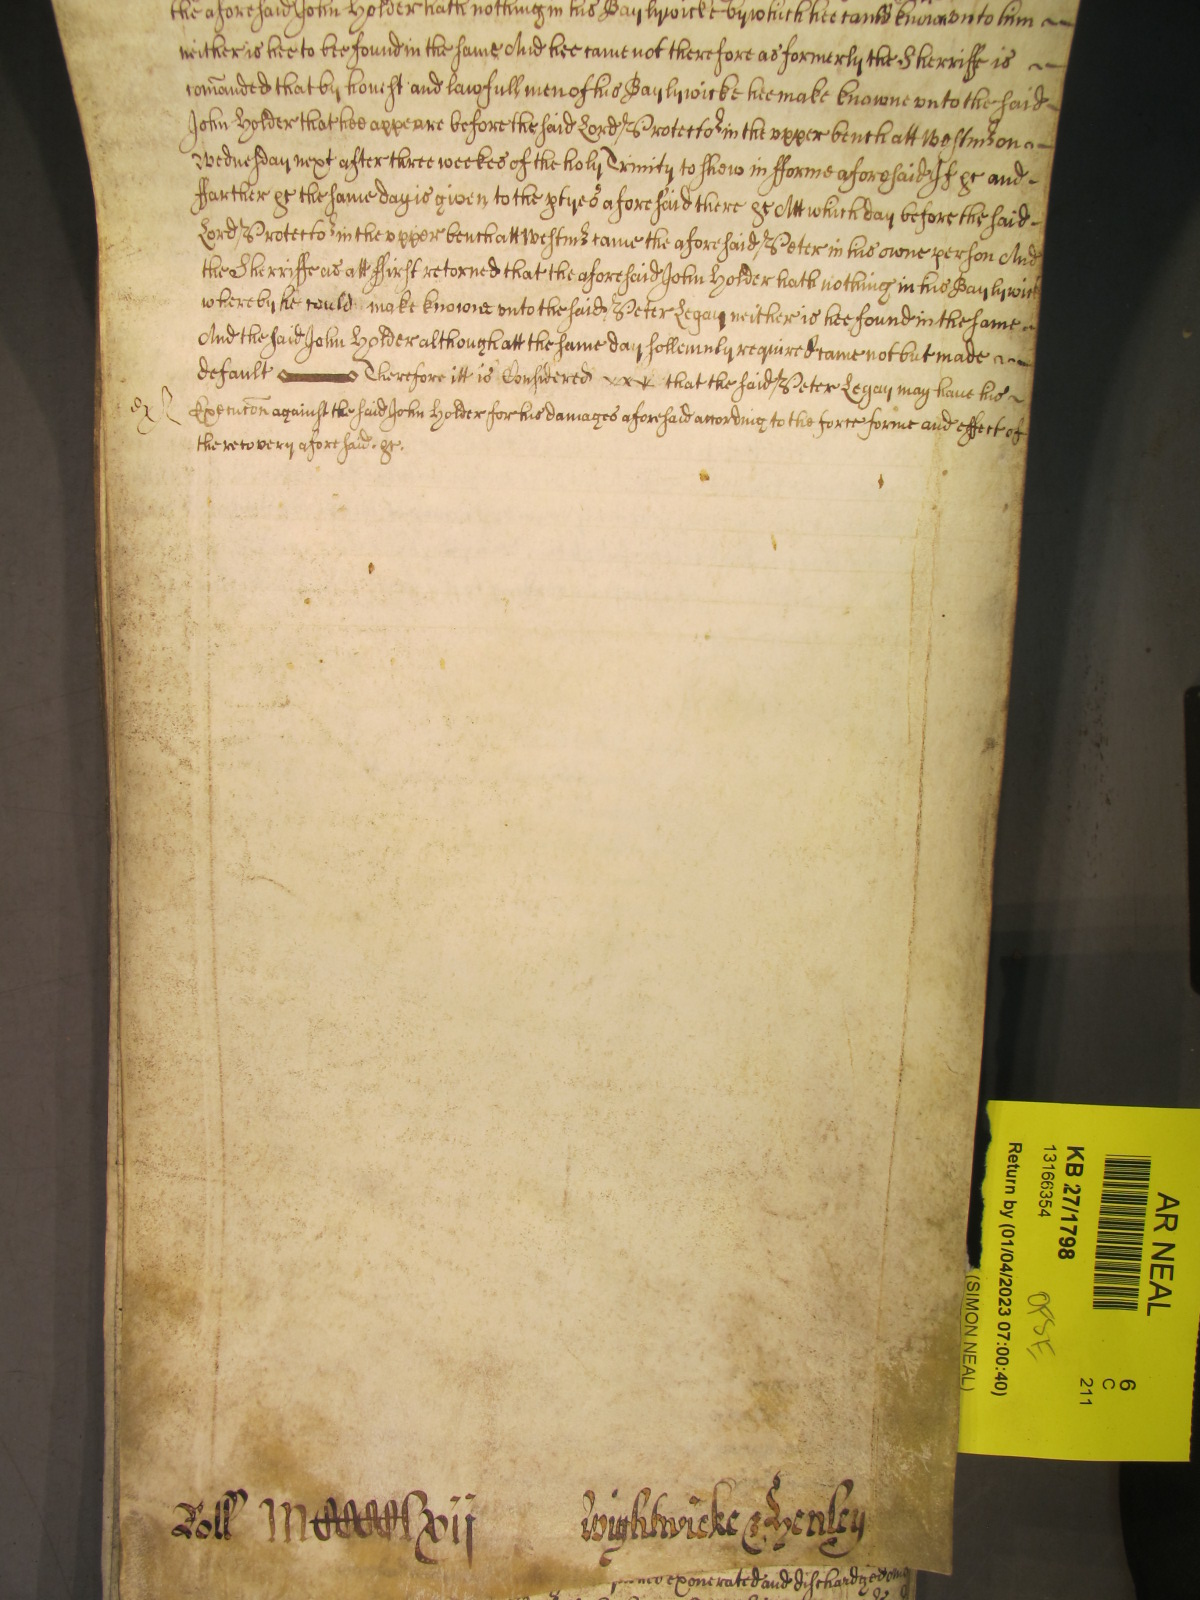 the aforesaid John Holder hath nothing in his Baylywicke by which hee can bee knowne unto him
neither is hee to bee found in the same And hee came not therefore as formerly the Sherriffe is
comanded that by honest and lawfull men of his Baylywicke hee make knowne vnto the said
John Holder that hee appeare before the said Lord Protector in the vpper bench att Westmr on
Wednesday next after three weekes of the holy Trinity to shew in fforme aforesaid If &c and
ffarther &c the same day is given to the ptyes aforesaid there &c Att which day before the said
Lord Protector in the vpper bench att Westmr came the aforesaid Peter in his owne person And
the Sherriffe as att ffirst retorned that the aforesaid John Holder hath nothing in his Baylywick
whereby he could make knowne vnto the said Peter Legay neither is hee found in the same
And the said John Holder although att the same day sollemnly required came not but made
default Therefore itt is Considered that the said Peter Legay may have his
Execucon against the said John Holder for his damages aforesaid according to the force forme and effect of
the recovery aforesaid. &c.
Roll MCCCClxij Wightwicke & Henley
exonerated and dischardged
AR NEAL
KB 27/1798
13166354
Return by (01/04/2023 07:00:40)
(SIMON NEAL)
6
C
211